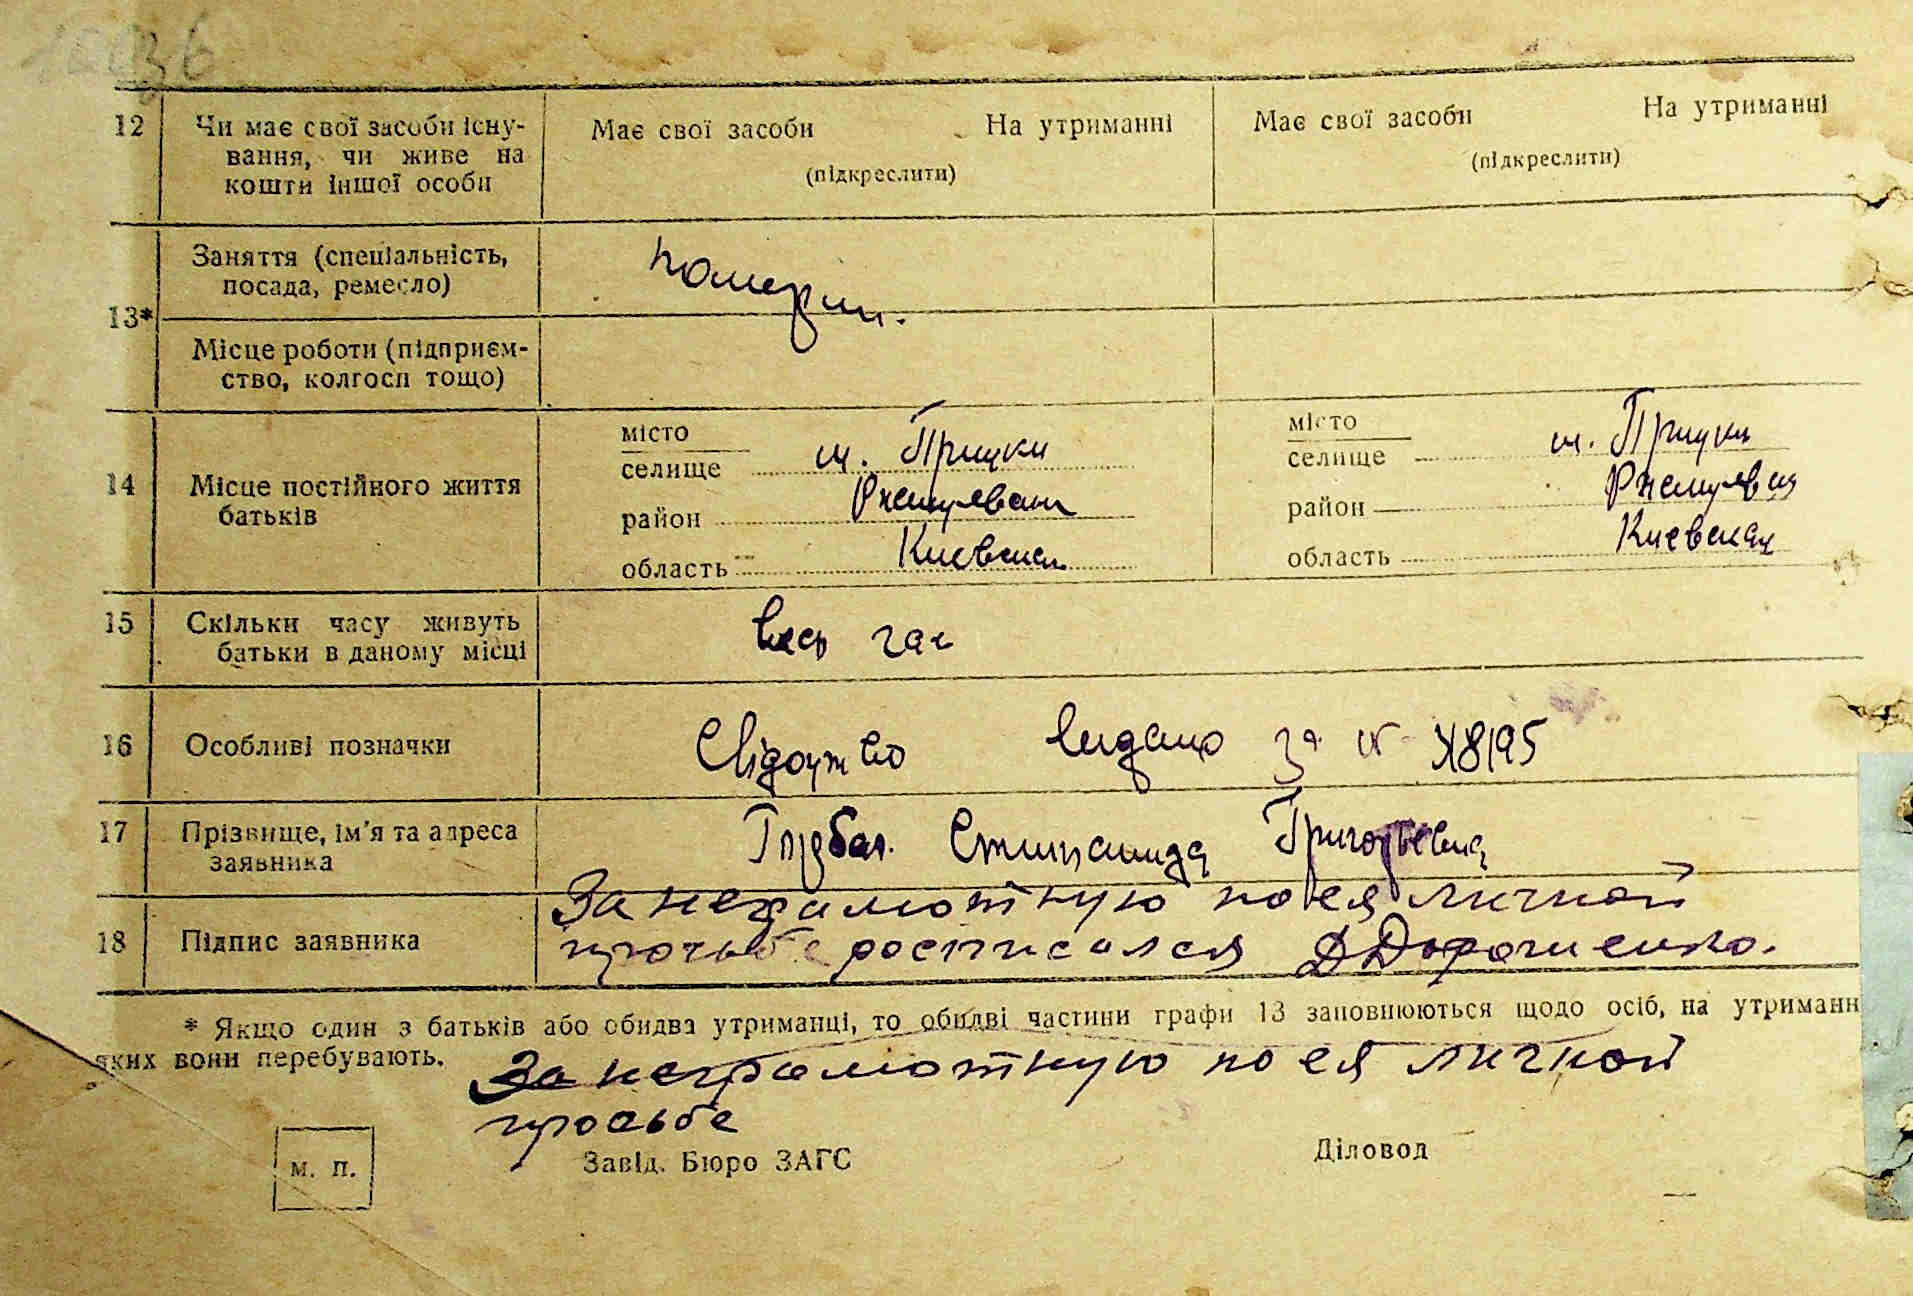 12 Чи має свої засоби існу-
вання, чи живе на
кошти іншої особи
Має свої засоби На утриманні
(підкреслити)
Має свої засоби На утриманні
(підкреслити)
13*
Заняття (спеціальність,
посада, ремесло)
померли.
Місце роботи (підприєм-
ство, колгосп тощо)
14 Місце постійного життя
батьків
місто
селище
район
область Киевская
місто
селище
район
область Киевская
15 Скільки часу живуть
батьки в даному місці
весь час
16 Особливі позначки
Свідоцтво видано за №
17 Прізвище, ім'я та адреса
заявника
Григорьевна
18 Підпис заявника
За неграмотную по ея личной
прозьбе росписался Д Дорошенко.
* Якщо один з батьків або обидва утриманці, то обидві частини графи 13 заповнюються щодо осіб, на утриманн
яких вони перебувають.
За неграмотную по ея личной
просьбе
м. п.
Завід. Бюро ЗАГС
Діловод